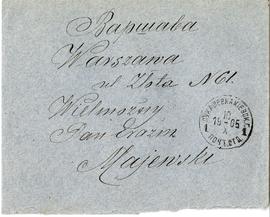 Варшава
Warszawa
ul Złota N 61.
Wielmożny
Pan Erazm
Majewski
19 05
1 1